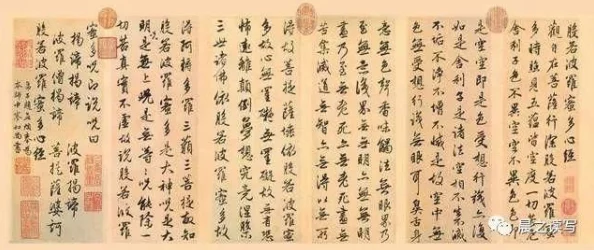 般若波羅蜜多心經
觀自在菩薩行深般若波羅蜜
多時照見五蘊皆空度一切苦厄
舍利子色不異空空不異色色即
是空空即是色受想行識亦復
如是舍利子是諸法空相不生不滅
不垢不淨不增不減是故空中無
色無受想行識無眼耳鼻舌身
意無色聲香味觸法無眼界乃
至無意識界無無明亦無無明
盡乃至無老死亦無老死盡無
苦集滅道無智亦無得以無所
得故菩提薩埵依般若波羅蜜
多故心無罣礙無罣礙故無有恐
怖遠離顛倒夢想究竟涅槃
三世諸佛依般若波羅蜜多故
得阿耨多羅三藐三菩提故知
般若波羅蜜多是大神咒是大
明咒是無上咒是無等等咒能除一
切苦真實不虛故說般若波羅
蜜多咒即說咒曰
揭諦揭諦 波羅揭諦
波羅僧揭諦 菩提薩婆訶
般若波羅蜜多心經
弟子趙孟頫奉為
本師中峯和尚書
晨之读写